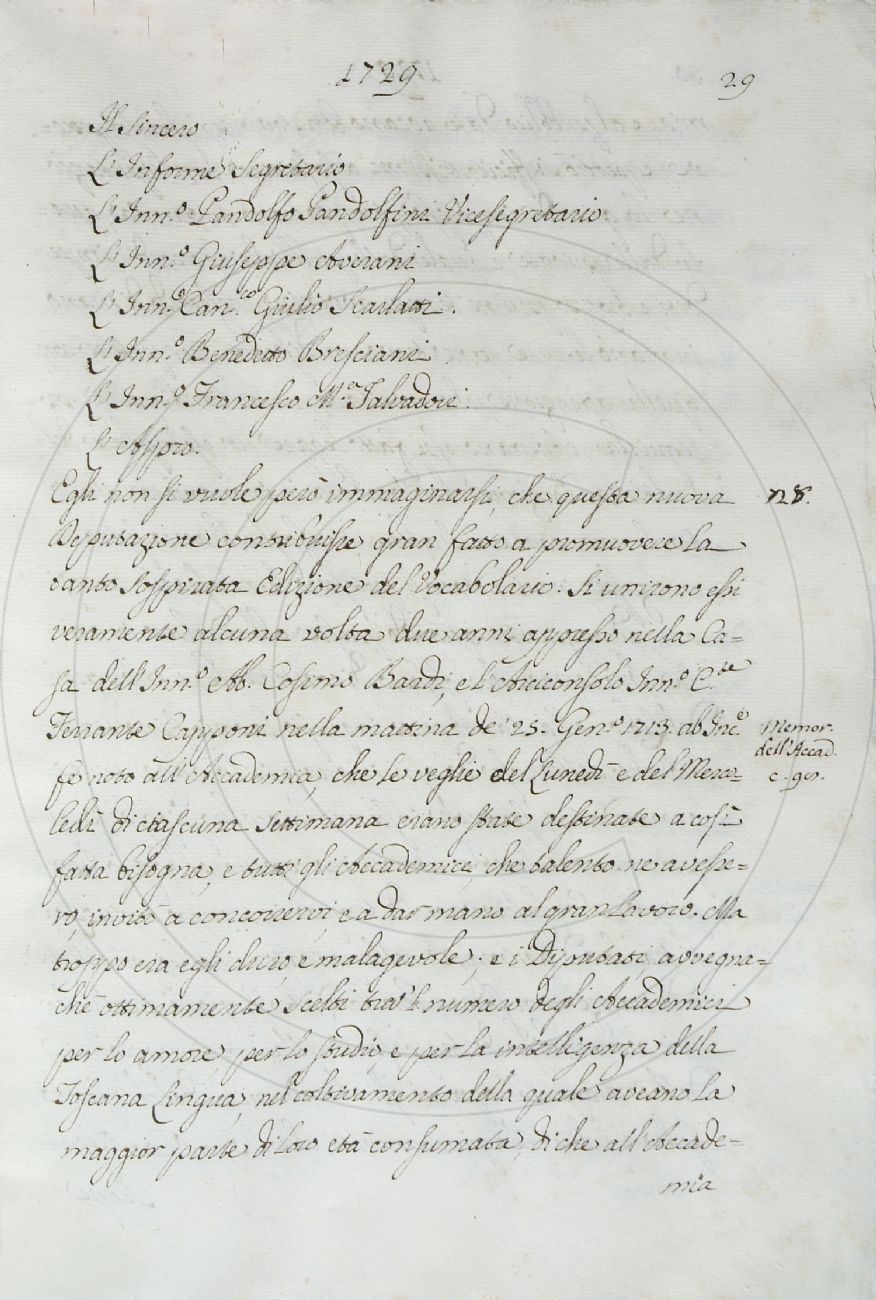 1729
29
Il Sincero
L'Informe Segretario
L'Inn.º Pandolfo Pandolfini Vicesegretario
L'Inn.º Giuseppe Averani
L'Inn.º Can.co Giulio Scarlatti.
L'Inn.º Benedetto Bresciani
L'Inn.º Francesco M.a Salvadori.
L'Aspro.
Egli non si vuole però immaginarsi, che questa nuova
128.
Deputazione contribuisse gran fatto a promuovere la
tanto sospirata Edizione del Vocabolario. Si unirono essi
veramente alcuna volta due anni appresso nella Ca=
sa dell'Inn.º Ab. Cosimo Bardi, e l'Arciconsolo Inn.º C.te
Ferrante Capponi nella mattina de' 25. Gen.º 1713. ab Inc.e
Memor.
dell'Accad.
fè noto all'Accademia, che le veglie del Lunedì e del Merco=
c. 901.
ledì di ciascuna settimana erano state destinate a così
fatta bisogna, e tutti gli Accademici, che talento ne avesse=
ro, invitò a concorrervi, e a dar mano al gran lavoro. Ma
troppo era egli duro, e malagevole; e i Diputati, avvegna=
chè ottimamente scelti tra 'l numero degli Accademici
per lo amore, per lo studio, e per la intelligenza della
Toscana Lingua, nel coltivamento della quale aveano la
maggior parte di loro età consumata, di che all'Accade=
mia